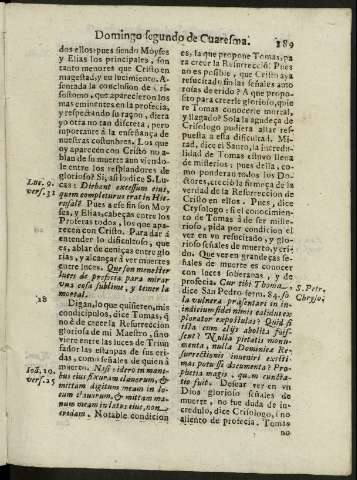 Domingo segundo de Cuaresma. 189
dos ellos: pues siendo Moyses
y Elias los principales, son
tanto menores que Cristo en
magestad, y en lucimiento. A-
sentada la conclusion de Cri-
sostomo, que aparecieron los
mas eminentes en la profecia,
y respectando su raçon, diera
yo otra no tan discreta, pero
importante á la enseñança de
nuestras costumbres. Los que
oy aparecen con Cristo no a-
blan de su muerte aun viendo-
le entre los resplandores de
glorioso? Si, asi lo dice S. Lu-
cas: Dicebant excessum eius,
quem completurus erat in Hie-
rusalē. Pues a ese fin son Moy-
ses, y Elias, cabeças entre los
Profetas todos, los que apa-
recen con Cristo. Para dar á
entender lo dificultoso, que
es, ablar de ceniças entre glo
rias, y alcançar á ver muertes
entre luces. Que son menester
luces de profecia para mirar
una cosa sublime, y temer la
mortal.
Luc. 9.
vers. 31
18
Digan, lo que quisieren, mis
condicipulos, dice Tomas, q
no è de creer la Resurreccion
gloriosa de mi Maestro, sino
viere entre las luces de Triun
fador las estanpas de sus eri-
das, como señales de quien à
muerto. Nisi videro in mani-
bus eius fixuram clavorum, &
mittam digitum meum in lo-
cum clavorum, & mittam ma-
num meam in latus eius, non
credam. Notable condicion
Ioā. 20.
vers. 25
es, la que propone Tomas, pa
ra creer la Resurrecciō! Pues
no es posible, que Cristo aya
resucitado sin las señales anto
rosas de erido? A que propo-
sito para creerle glorioso, quie
re Tomas conocerle mortal,
y llagado? Sola la agudeça de
Crisologo pudiera allar res-
puesta a esta dificultad. Mi-
rad, dice el Santo, la incredu-
lidad de Tomas estuvo llena
de misterios; pues della, co-
mo ponderan todos los Do-
ctores, crecio la firmeça de la
verdad de la Resurreccion de
Cristo en ellos. Pues, dice
Crysologo; si el conocimien-
to de Tomas á de ser mila-
groso, pida por condicion el
ver en un resucitado, y glo-
rioso señales de muerto, y eri-
do. Que ver en grandeças se-
ñales de muerte es conocer
con luces soberanas, y de
profecia. Cur ibi Thoma,
dice San Pedro serm. 84. so
la vulnera præsentari in in-
indicium fidei nimis calidus ex
plorator expostulas? Quid si
ista cum aliis abolita fuis-
sent? Nulla pietatis monu-
menta, nulla Dominicæ Re-
surrectionis inveniri existi-
mas potuisse documenta? Pro-
phetia magis, quam cuncta-
tio fuit. Desear ver en un
Dios glorioso señales de
muerte, no fue duda de in-
credulo, dice Crisologo, i no
aliento de profecia. Tomas
S. Petr.
Chrysol.
no